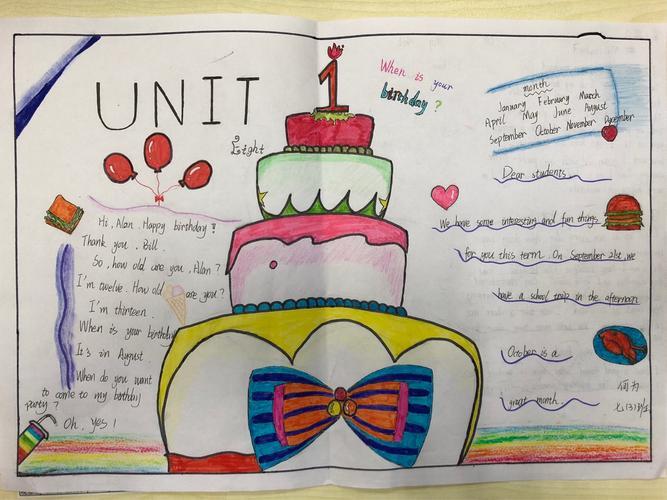 UNIT
1
Eight
When is your
birthday?
month
January February March
April May June August
September October November December
Dear students,
We have some interesting and fun things
for you this term. On September 21st, we
have a school trip in the afternoon
October is a
great month.
Hi, Alan. Happy birthday!
Thank you. Bill.
So, how old are you, Alan?
I'm twelve. How old are you?
I'm thirteen.
When is your birthday
It's in August.
When do you want
to come to my bithday
party?
Oh, yes!